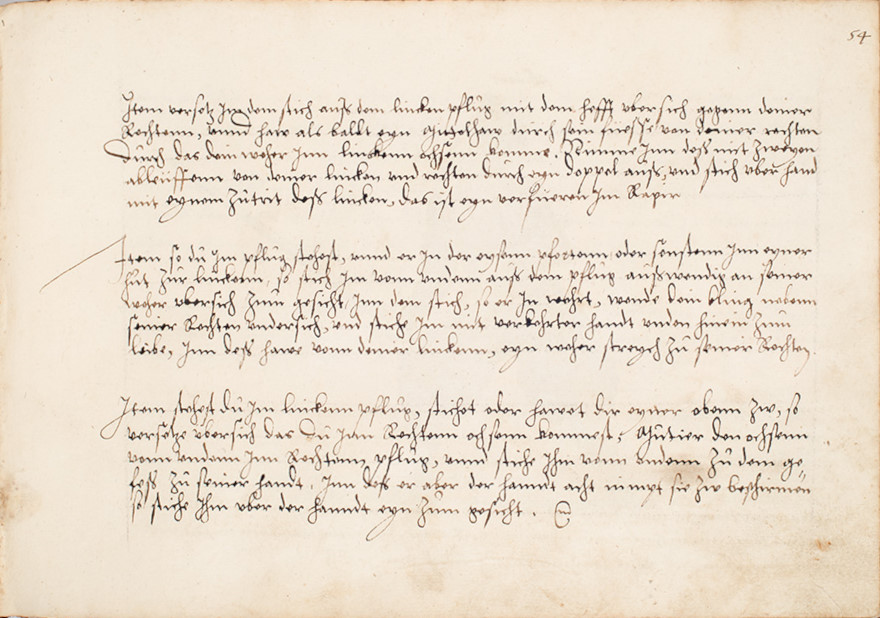 54
Item versetz Im den stich auß dem lincken pflug mit dem hefft vbersich gegenn deiner
Rechtenn, vnnd haw als baldt eyn Mittelhaw durch sein füesse von deiner rechten
durch das dein wehr Inn linckenn ochsenn komme, Nimme Inn deß mit zweyen
ableüffenn von deiner lincken vnd rechten durch eyn doppel auß, vnd stich vber hand
mit eynem zůtrit deß lincken, das ist eyn verfüeren Im Rapir
Item so dů Im pflug stehest, vnnd er In der eysenn pfortenn oder sonstenn Inn eyner
hůt zur linckenn, so stich Im vonn vndenn auß dem pflug außwendig an seiner
wehr vbersich zum gesicht, Inn dem stich, so er In wehrt, wende dein kling nebenn
seiner Rechten vndersich, vnd stiche Im mit verkehrter handt vnden hinein zum
leibe, Inn deß hawe vonn deiner linckenn, eyn weher streych zů seiner Rechten.
Item stehest dů Im linckenn pflug, stichet oder hawet dir eyner obenn zw, so
versetze vbersich das dů Inn Rechtenn ochsenn kommest, Mutier den ochsenn
vonn vndenn Inn Rechtenn pflug, vnnd stiche Ihm vonn vndenn zů dem ge=
feß zů seiner handt, Inn deß er aber der hanndt acht nimpt sie zw beschirmen
so stiche Ihm vber der hanndt eyn zum gesicht.